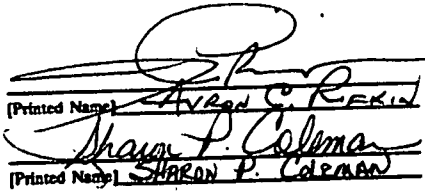 [Printed Name] AVRON C. RIFKIN
Sharon P. Coleman
[Printed Name] SHARON P. COLEMAN